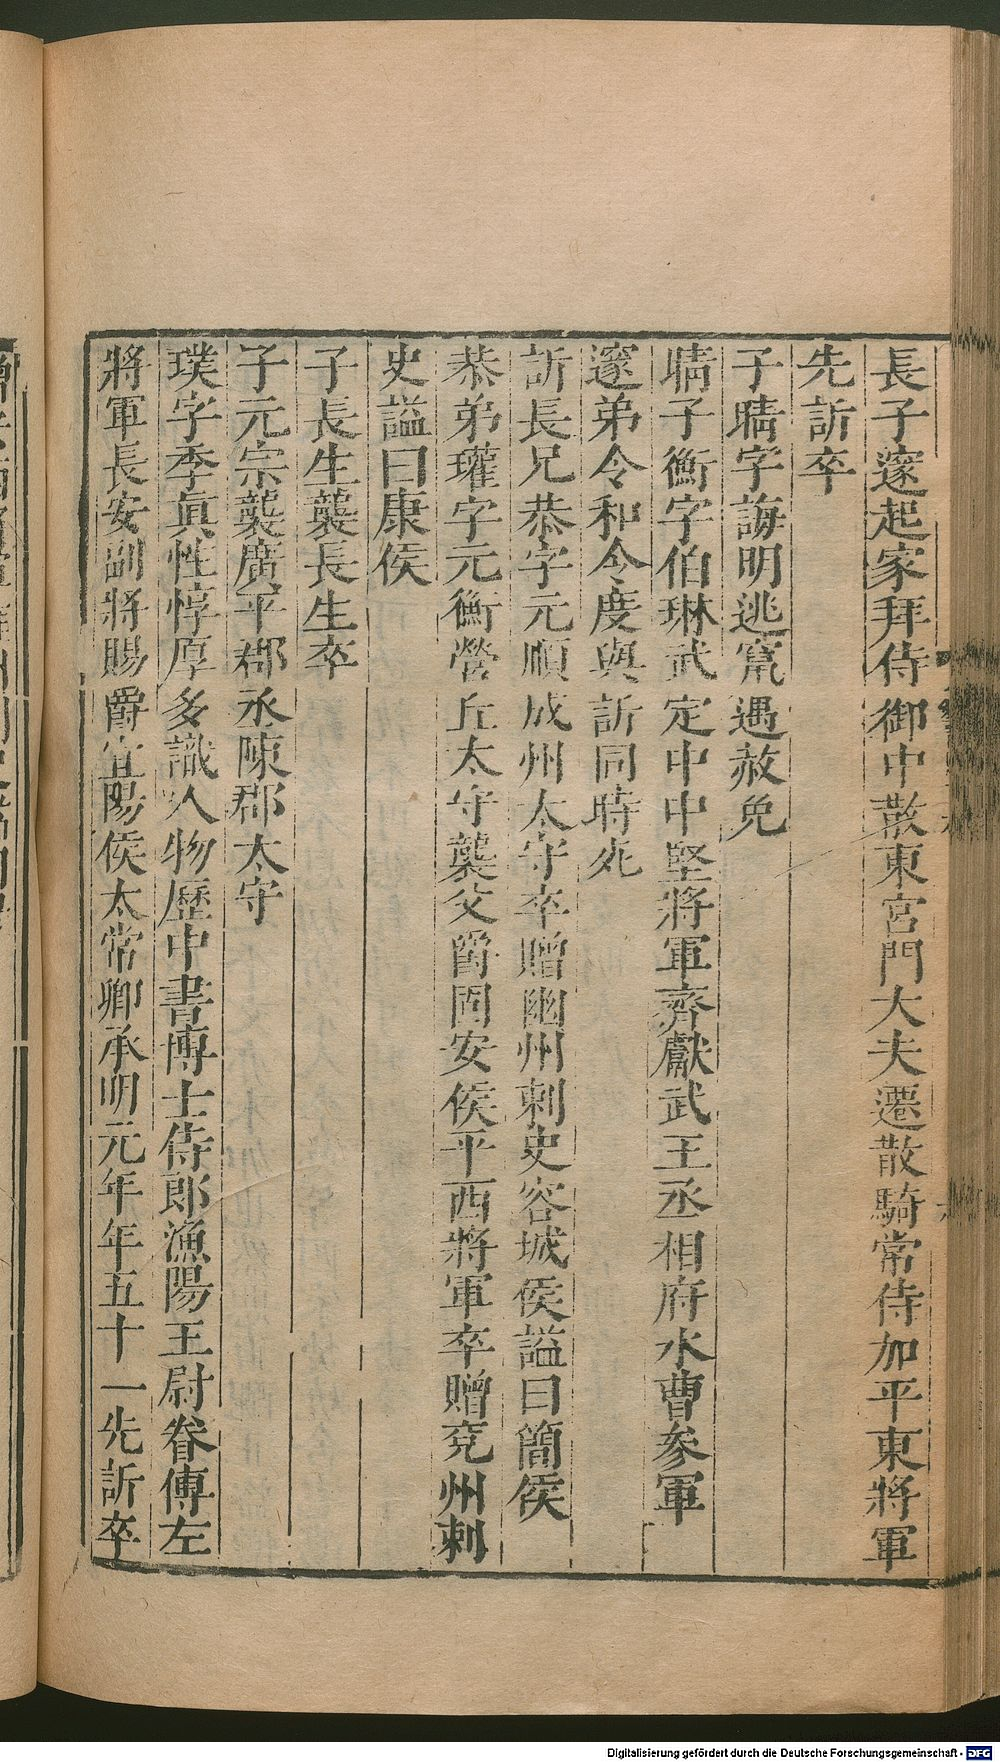 長子邃起家拜侍御中散東宮門大夫遷散騎常侍加平東將軍
先訢卒
子晴字誨明逃竄遇赦免
晴子衡字伯琳武定中中堅將軍齊獻武王丞相府水曹參軍
邃弟令和令度與訢同時死
訢長兄恭字元順成州太守卒贈幽州刺史容城侯謚曰簡侯
恭弟瓘字元衡營丘太守襲父爵固安侯平西將軍卒贈兖州刺
史謚曰康侯
子長生襲長生卒
子元宗襲廣平郡丞陳郡太守
璞字季眞性惇厚多識人物歷中書博士侍郎漁陽王尉眷傅左
將軍長安副將賜爵宜陽侯太常卿承明元年年五十一先訢卒
Digitalisierung gefördert durch die Deutsche Forschungsgemeinschaft - DFG